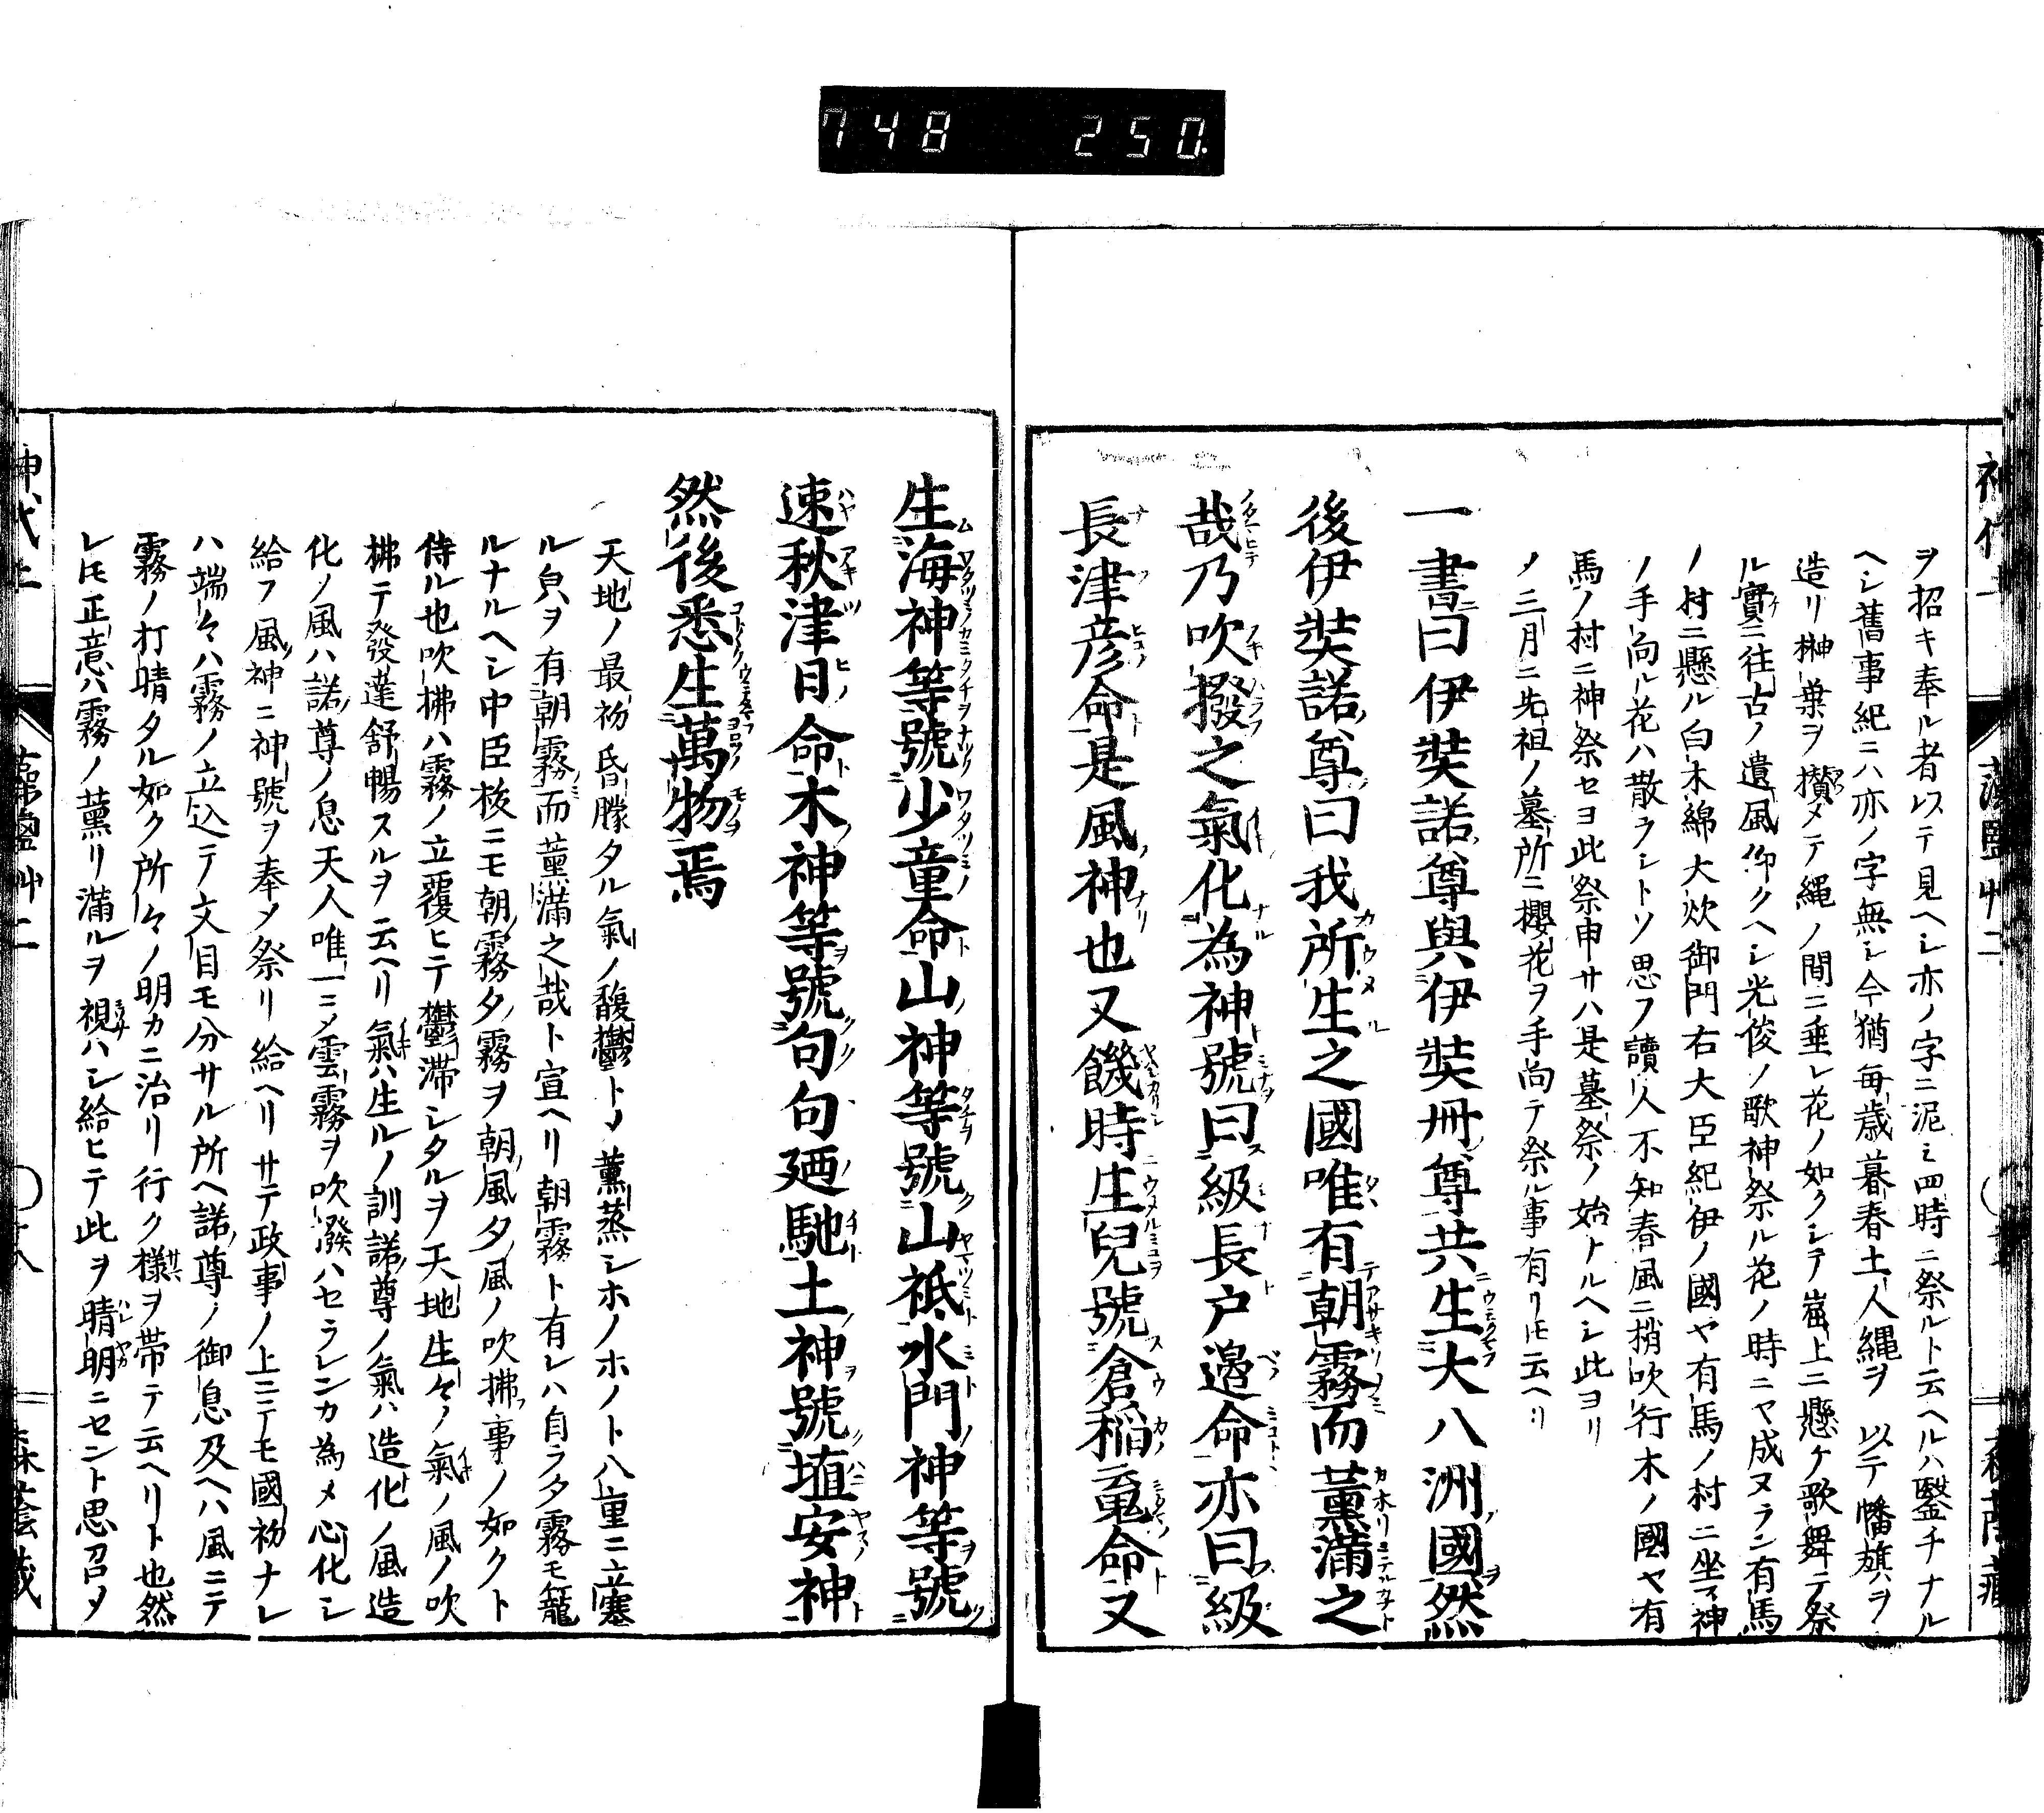 748 250
ヲ招キ奉ル者トステ見ヘシ亦ノ字ニ泥ミ四時ニ祭ルト云ヘルハ盬チナル
ヘシ舊事紀ニハ亦ノ字無シ今猶毎歳暮春土人縄ヲ以テ幡旗ヲ
造リ榊葉ヲ攅メテ縄ノ間ニ垂レ花ノ如クシテ嵓上ニ懸ケ歌舞テ祭
ル實ニ往古ノ遺風仰クヘシ光俊ノ歌神祭ル花ノ時ニヤ成ヌラン有馬
ノ村ニ懸ル白木綿大炊御門右大臣紀伊ノ國ヤ有馬ノ村ニ坐ス神
ノ手向ル花ハ散ラシトソ思フ讀人不知春風ニ梢吹行木ノ國ヤ有
馬ノ村ニ神祭セヨ此祭申サハ是墓祭ノ始トルヘシ此ヨリ
ノ三月ニ先祖ノ墓所ニ櫻花ヲ手向テ祭ル事有リトモ云ヘリ
一書曰伊弉諾尊與伊弉冊尊共生大八洲國然
後伊弉諾尊曰我所生之國唯有朝霧而薫滿之
哉乃吹撥之氣化為神號曰級長戸邉命亦曰級
長津彦命是風神也又飢時生兒號倉稲䰟命又
生海神等號少童命山神等號山祇水門神等號
速秋津日命木神等號句句廼馳土神號埴安神
然後悉生萬物焉
天地ノ最初昏朦タル氣ノ馥鬱トノ薫蒸シホノホノト八重ニ立塞
ル皃ヲ有朝霧而薫滿之哉ト宣ヘリ朝霧ト有レハ自ラ夕霧モ籠
ルナルヘシ中臣祓ニモ朝霧夕霧ヲ朝風夕風ノ吹拂事ノ如クト
侍ル也吹拂ハ霧ノ立覆ヒテ鬱滞シタルヲ天地生々ノ氣ノ風ノ吹
拂テ發達舒暢スルヲ云ヘリ氣ハ生ルノ訓諾尊ノ氣ハ造化ノ風造
化ノ風ハ諾尊ノ息天人唯一ニメ雲霧ヲ吹潑ハセラレンカ為メ心化シ
給フ風神ニ神號ヲ奉メ祭リ給ヘリサテ政事ノ上ニテモ國初ナレ
ハ端々ハ霧ノ立込テ文目モ分サル所ヘ諾尊ノ御息及ヘハ風ニテ
霧ノ打晴タル如ク所々ノ明カニ治リ行ク様ヲ帯テ云ヘリト也然
レトモ正意ハ霧ノ薫リ滿ルヲ視ハシ給ヒテ此ヲ晴明ニセント思召メ